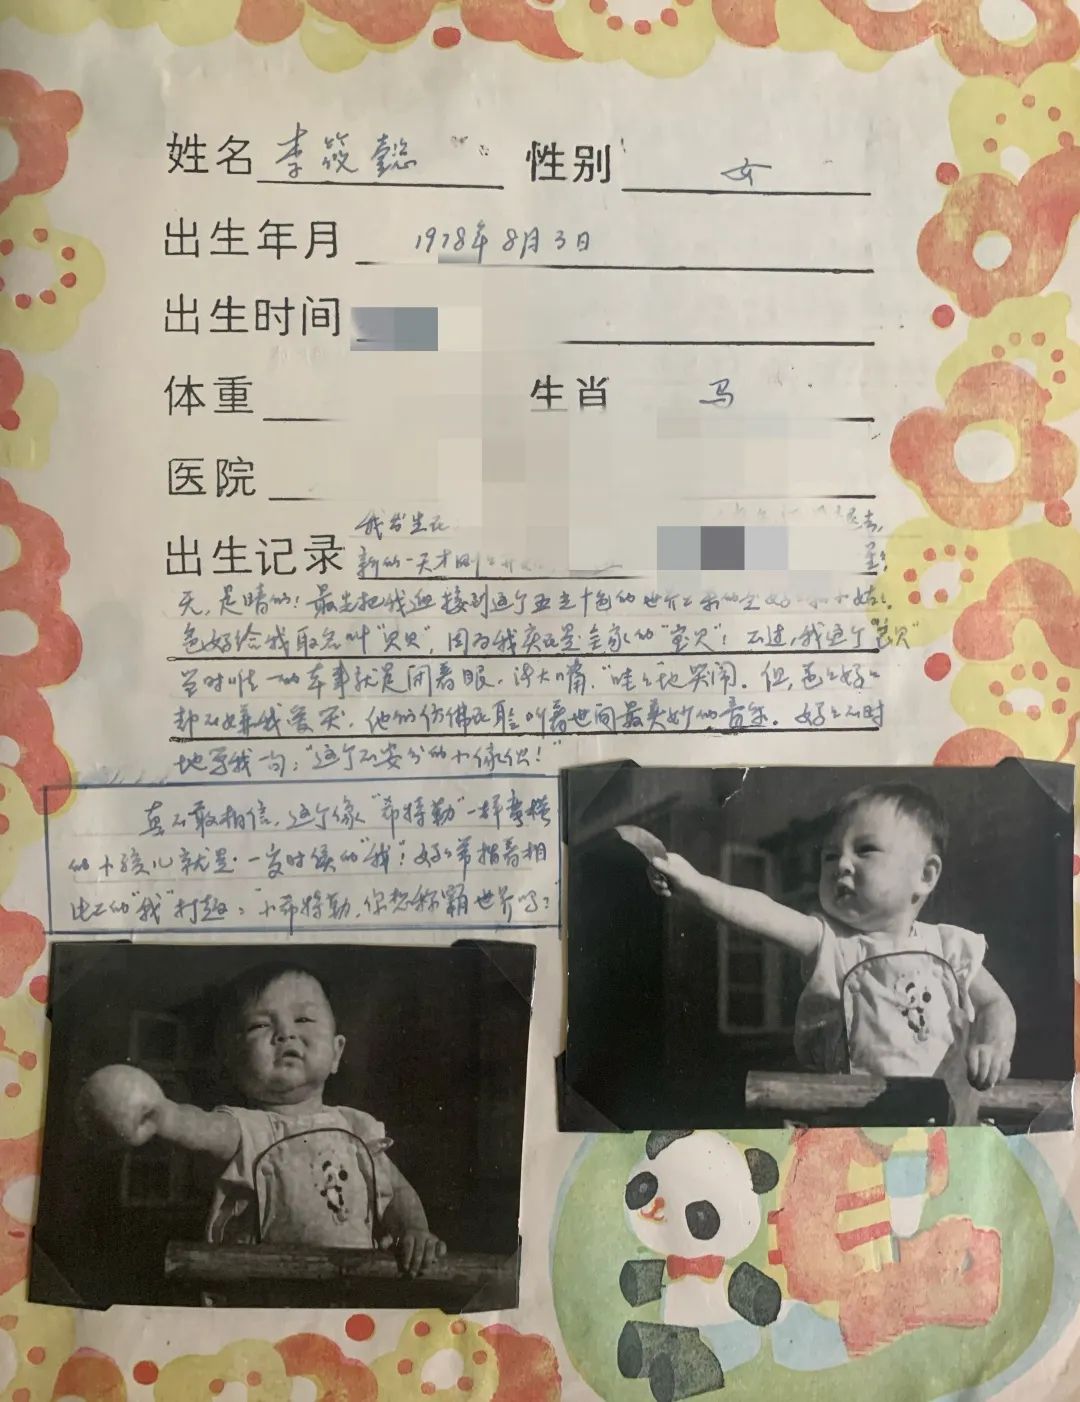 姓名 李筱懿 性别 女
出生年月 1978年8月3日
出生时间
体重 生肖 马
医院
我出生在
出生记录 新的一天才刚
天,是晴的!最先把我迎接到这个五光十色的世界上来的
爸妈给我取名叫“贝贝”,因为我实在是全家的“宝贝”!不过,我这个“宝贝”
当时唯一的本事就是闭着眼,张大嘴,“哇哇”地哭闹。但,爸爸妈妈
却不嫌我爱哭,他们仿佛在聆听着世间最美妙的音乐。妈妈不时
地骂我句:“这个不安分的小家伙!”
真不敢相信,这个像“希特勒”一样蛮横
的小孩儿就是一岁时候的“我”!妈妈常指着相
片上的“我”打趣:小希特勒,你想称霸世界吗?